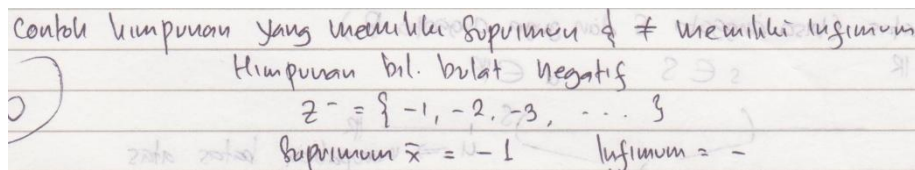 Contoh himpunan yang memiliki Suprimum & ≠ memiliki Infimum
Himpunan bil. bulat negatif
Z⁻ = { -1, -2, -3, .... }
Suprimum x̄ = -1 Infimum = -